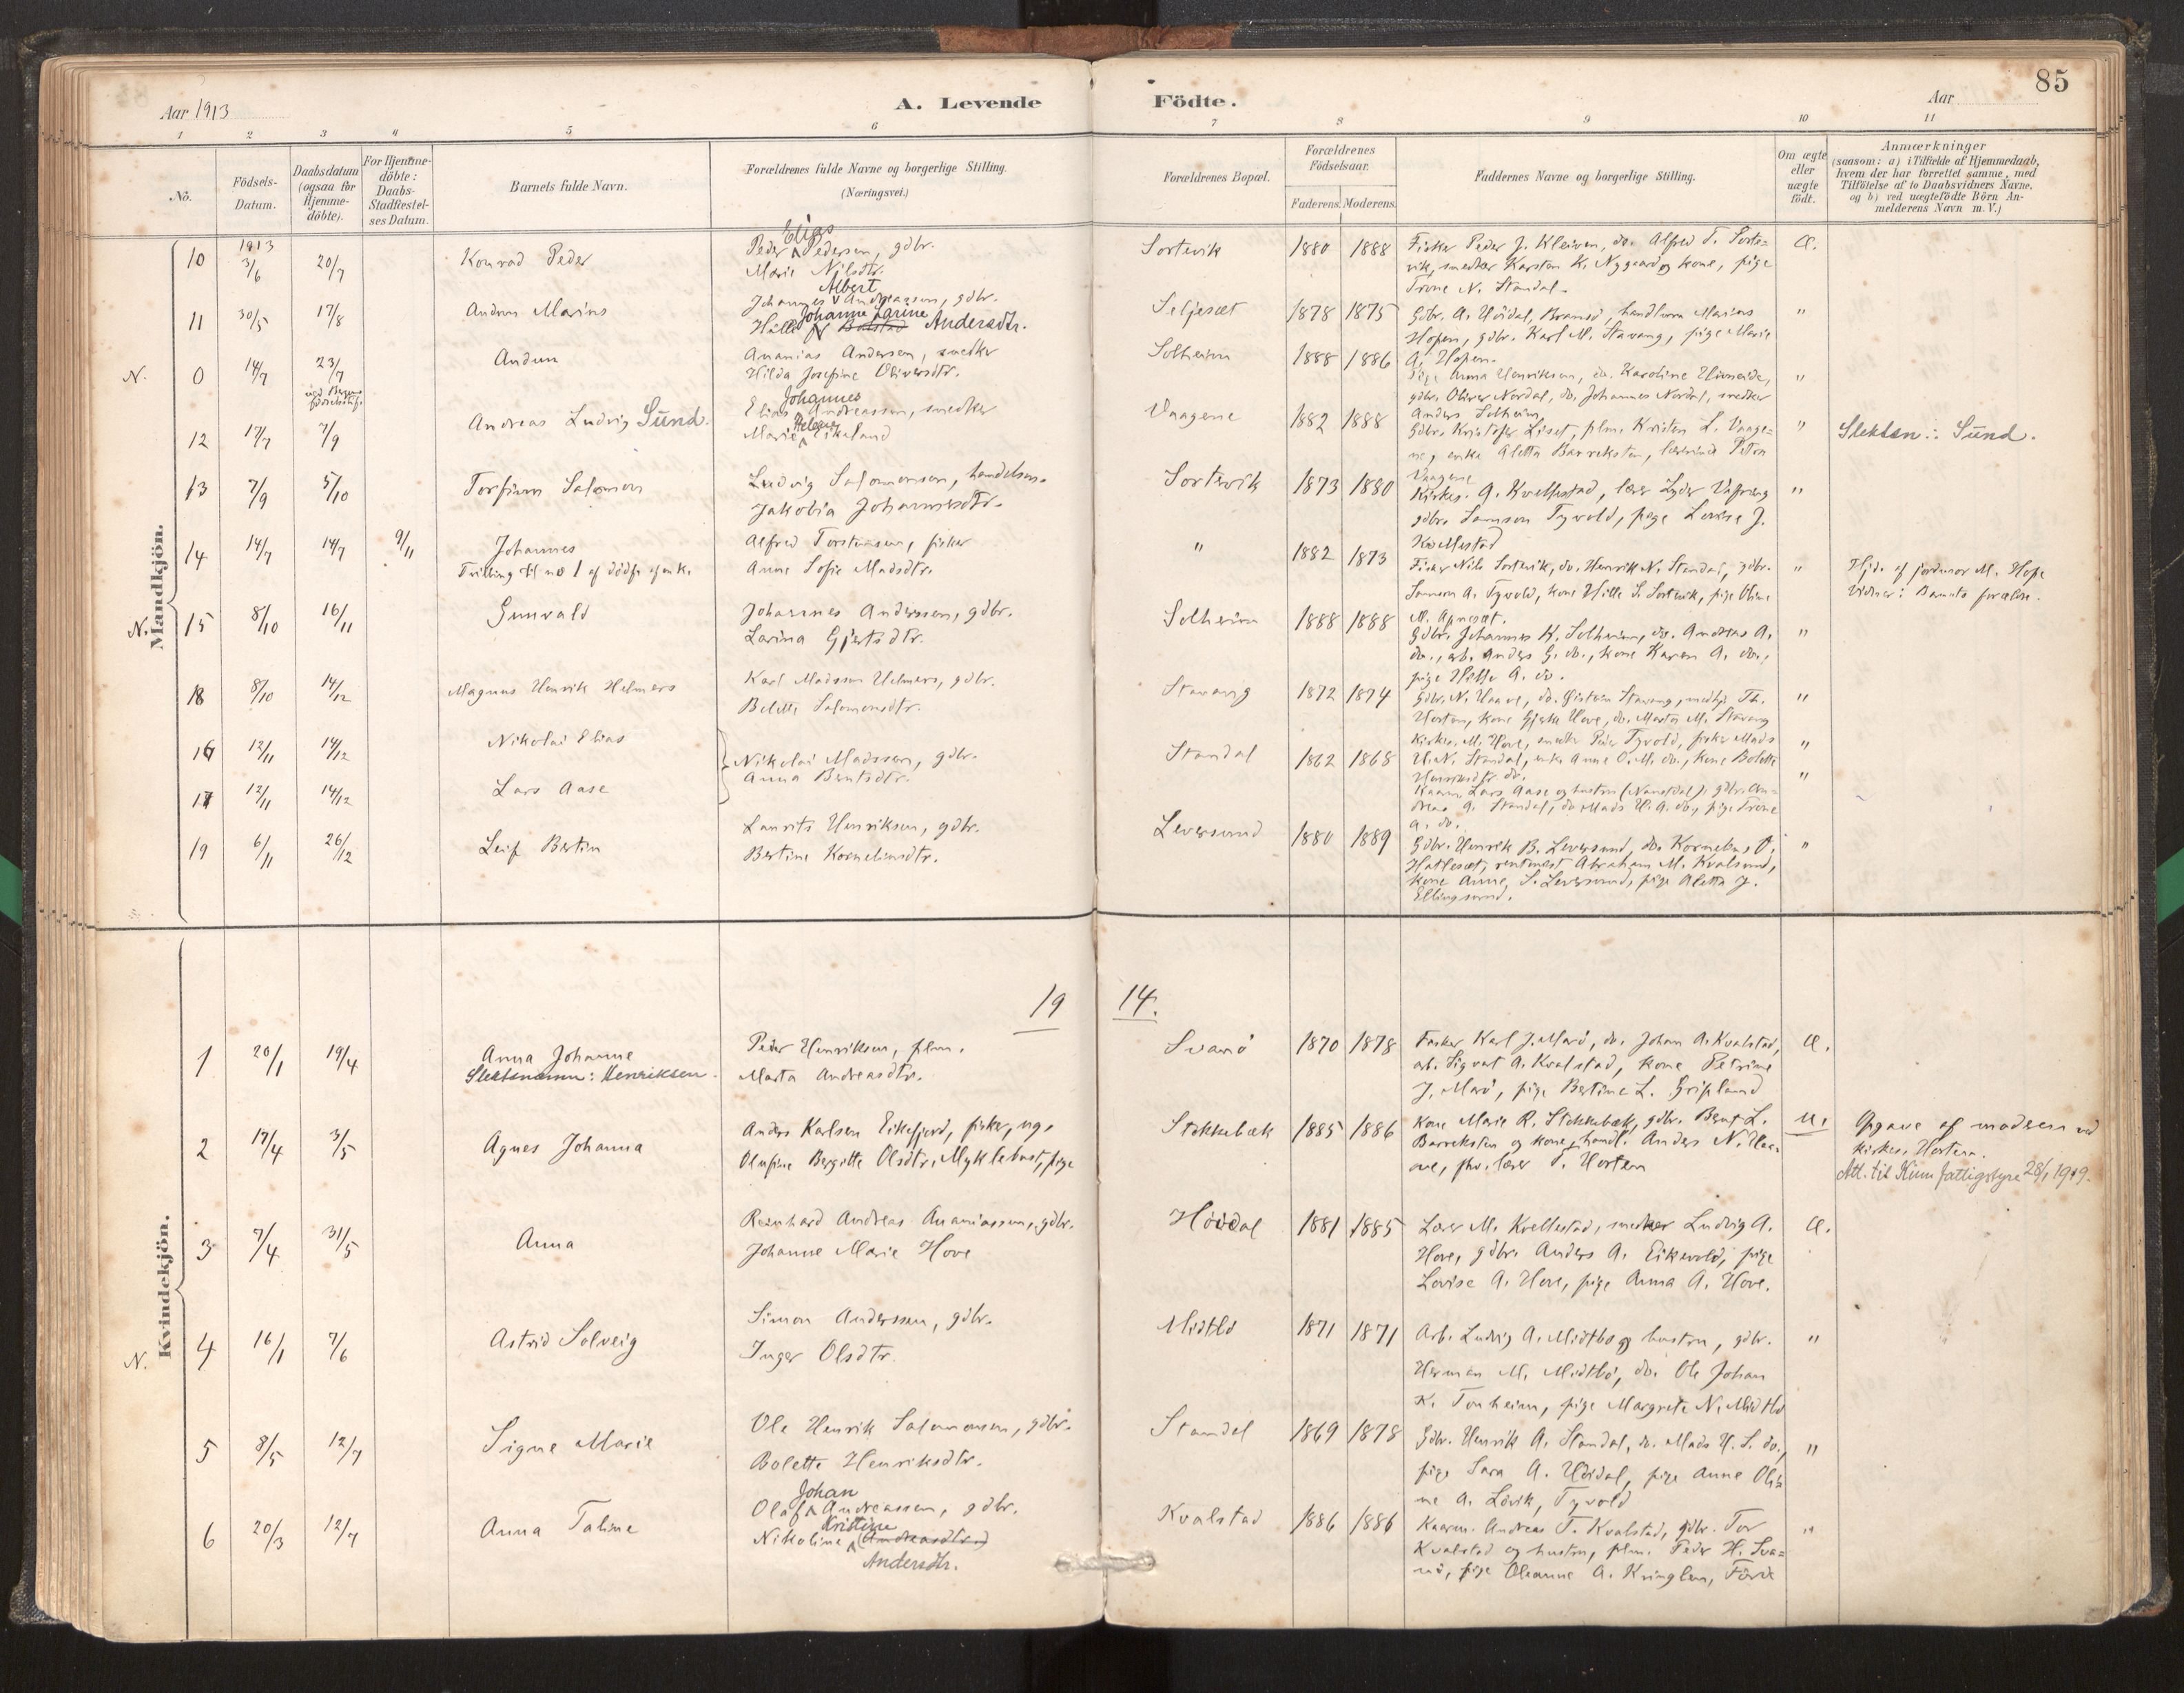 85
Aar 1913
A. Levende
Födte.
Aar
1 2 3 4 5 6 7 8 9 10 11
No.
Födsels-
Datum.
Daabsdatum
(ogsaa for
Hjemme-
döbte).
For Hjemme-
döbte:
Daabs-
Stadfæstel-
ses Datum.
Barnets fulde Navn.
Forældrenes fulde Navne og borgerlige Stilling.
(Næringsvei.)
Forældrenes Bopæl.
Forældrenes
Födselsaar.
Faderens. Moderens.
Faddernes Navne og borgerlige Stilling.
Om ægte
eller
uægte
født.
Anmærkninger
(saasom: a) i Tilfælde af Hjemmedaab,
hvem der har forrettet samme, med
Tilföielse af to Daabsvidners Navne,
og b) ved uægtefödte Börn An-
melderens Navn m. V.)
Mandkjön.
1913
10 3/6 20/7 Konrad Peder
Elias
Peder Pedersen, gdbr.
Marie Nilsdtr.
Sortevik 1880 1888
Fisker Peder J. Kleiven, do. Alfred T. Sorte=
vik, snedker Karsten K. Nygaard og kone, pige
Trone N. Standal.
Æ.
11 30/5 17/8 Andrus Marius
Albert
Johannes Andreassen, gdbr.
Johanne Larine
Batstad Andersdtr.
Seljeset 1878 1875
Gdbr. A. Høidal, Bramsö, handlsm Marius
Hopen, gdbr. Karl M. Stavang, pige Marie
A. Hopen.
"
N. 0 14/7 23/7 Andun
Ananias Andersen, snedker
Hilda Josefine Oliversdtr.
Solheim 1888 1886
Pige Anna Henriksen, do. Karoline
gdbr. Oliver Nordal, do. Johannes Nordal, snedker
Anders Solheim,
"
12 17/7 7/9 Andreas Ludvig Sund.
Johannes
Elias Andreassen, snedker
Helene
Marie Eikeland
Vaagene 1882 1888
Gdbr. Kristofer Liset, plm. Kristen L. Vaage=
ne, enke Aletta Barreksten, lærerinde Petra
Vaagene
"
Slekten: Sund.
13 7/9 5/10 Torfinn Salomon
Ludvig Salomonsen, handelsm.
Jakobia Johannesdtr.
Sortevik 1873 1880
Kirkes. A. Kvellestad, lærer
gdbr. Samson Tyvold, pige Lovise J.
Kvellestad
"
14 14/7 14/7 9/11 Johannes
Tvilling til no 1 af dödf. af mk.
Alfred Torstensen, fisker
Anne Sofie Madsdtr.
" 1882 1873
Fisker Nils Sortevik, do. Henrik N. Standal, gdbr.
Samson A. Tyvold, kone Hille S. Sortevik, pige Oline
M. Apneset.
"
Hjd. af jordmor M. Hope
Vidner: Barnets forældre.
N. 15 8/10 16/11 Gunvald
Johannes Anderssen, gdbr.
Larina Gjertsdtr.
Solheim 1888 1888
Gdbr. Johannes K. Solheim, do. Andreas A.
do., arb. Anders G. do., kone Karen A. do.,
pige Hette A. do.
"
18 8/10 14/12 Magnus Henrik Helmers
Karl Madssen Helmers, gdbr.
Bolette Salomonsdtr.
Stavang 1872 1874
Gdbr. N. Haave, do. Stavang, Th.
Horten, kone Gjerte Hove, do. Marta M. Stavang
"
16 12/11 14/12 Nikolai Elias
Nikolai Madssen, gdbr.
Anna Berntsdtr.
Standal 1862 1868
Kirkes. M. Hove, snedker Peder Tyvold, fisker Mads
H. N. Standal, enke Anne O. M. do., kone Bolette
Henriksdtr do.
"
17 12/11 14/12 Lars Aase
Kaarm. Lars Aase og hustru (Naustdal), gdbr. An=
dreas A. Standal, do. Mads H. A. do., pige Trone
A. do.
"
19 6/11 26/12 Leif Bertin
Laurits Henriksen, gdbr.
Bertine Korneliusdtr.
Leversund 1880 1889
Gdbr. Henrik B. Leversund, do. Kornelius O.
Hatleset, rentmest Abraham M. Kvalsund,
kone Anne S. Leversund, pige Aletta J.
Ellingsund.
"
Kvindekjön.
19 14.
1 20/1 19/4 Anna Johanne
Slektsnamn: Henriksen.
Peder Henriksen, plm.
Marta Andreasdtr.
Svanö 1870 1878
Fisker Karl J. Marö, do. Johan A. Kvalstad,
arb. Sigvat A. Kvalstad, kone Petrine
J. Marö, pige Bertine L. Gripland
Æ.
2 17/4 3/5 Agnes Johanna
Anders Karlsen Eikefjord, fisker, ug.
Olufine Bergitte Olsdtr. Myklebust, pige
Stokkebæk 1885 1886
Kone Marie R. Stokkebæk, gdbr. Bernt L.
Barreksten og kone, handl. Anders N. Haa=
ove, fhv. lærer T. Horten
U.
Opgave af moderen ved
kirkes. Horten.
Att. til Kinn fattigstyre 28/1 1919.
3 7/4 31/5 Anna
Reinhard Andreas Ananiassen, gdbr.
Johanne Marie Hove
Höidal 1881 1885
Lærer M. Kvellestad, snedker Ludvig A.
Hove, gdbr. Anders A. Eikevold, pige
Lovise A. Hove, pige Anna A. Hove.
Æ.
N. 4 16/1 7/6 Astrid Solveig
Simon Anderssen, gdbr.
Inger Olsdtr.
Midtbö 1871 1871
Arb. Ludvig A. Midtbö og hustru, gdbr.
Herman M. Midtbö, do. Ole Johan
K. Tonheim, pige Margrete N. Midtbö
"
5 8/5 12/7 Signe Marie
Ole Henrik Salomonsen, gdbr.
Bolette Henriksdtr.
Standal 1869 1878
Gdbr. Henrik A. Standal, do. Mads H. S. do.,
pige Sara A. Höidal, pige Anne Oli=
ne A. Lövik, Tyvold
"
6 20/3 12/7 Anna Taline
Johan
Olaf Andreassen, gdbr.
Kristine
Nikoline (Andreasdtr.)
Andersdtr.
Kvalstad 1886 1886
Kaarm. Andreas T. Kvalstad, gdbr. Tor
Kvalstad og hustru, plm. Peder H. Sva=
nö, pige Oleanne A. Kringlen, Förde
"